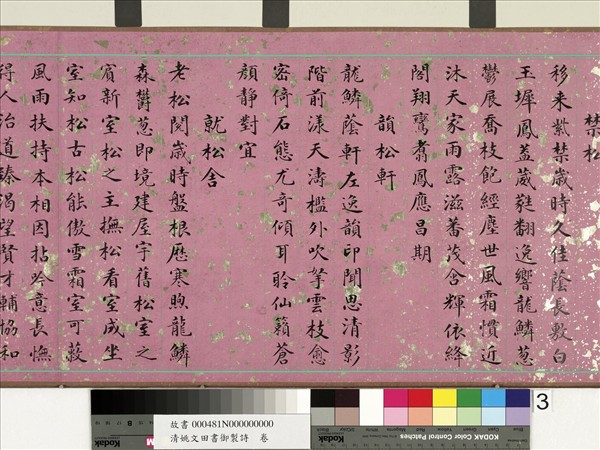 禁松
移来紫禁歲時久佳蔭長敷白
玉墀鳳蓋葳蕤翻逸響龍鱗蔥
鬱展喬枝飽經塵世風霜慣近
沐天家雨露滋蕃茂含輝依絳
閣翔鸞翥鳳應昌期
韻松軒
龍鱗蔭軒左逸韻印聞思清影
階前漾天濤檻外吹拏雲枝愈
密倚石態尤奇傾耳聆仙籟蒼
顏靜對宜
就松舍
老松閱歲時盤根歷寒煦龍鱗
森欝蔥即境建屋宇舊松室之
賓新室松之主撫松看室成坐
室知松古松能傲雪霜室可蔽
風雨扶持本相因拈吟意長憮
得人治道臻渴望賢才輔協和
3
故書 000481N000000000
清姚文田書御製詩 卷
Kodak
KODAK Color Control Patches
Kodak